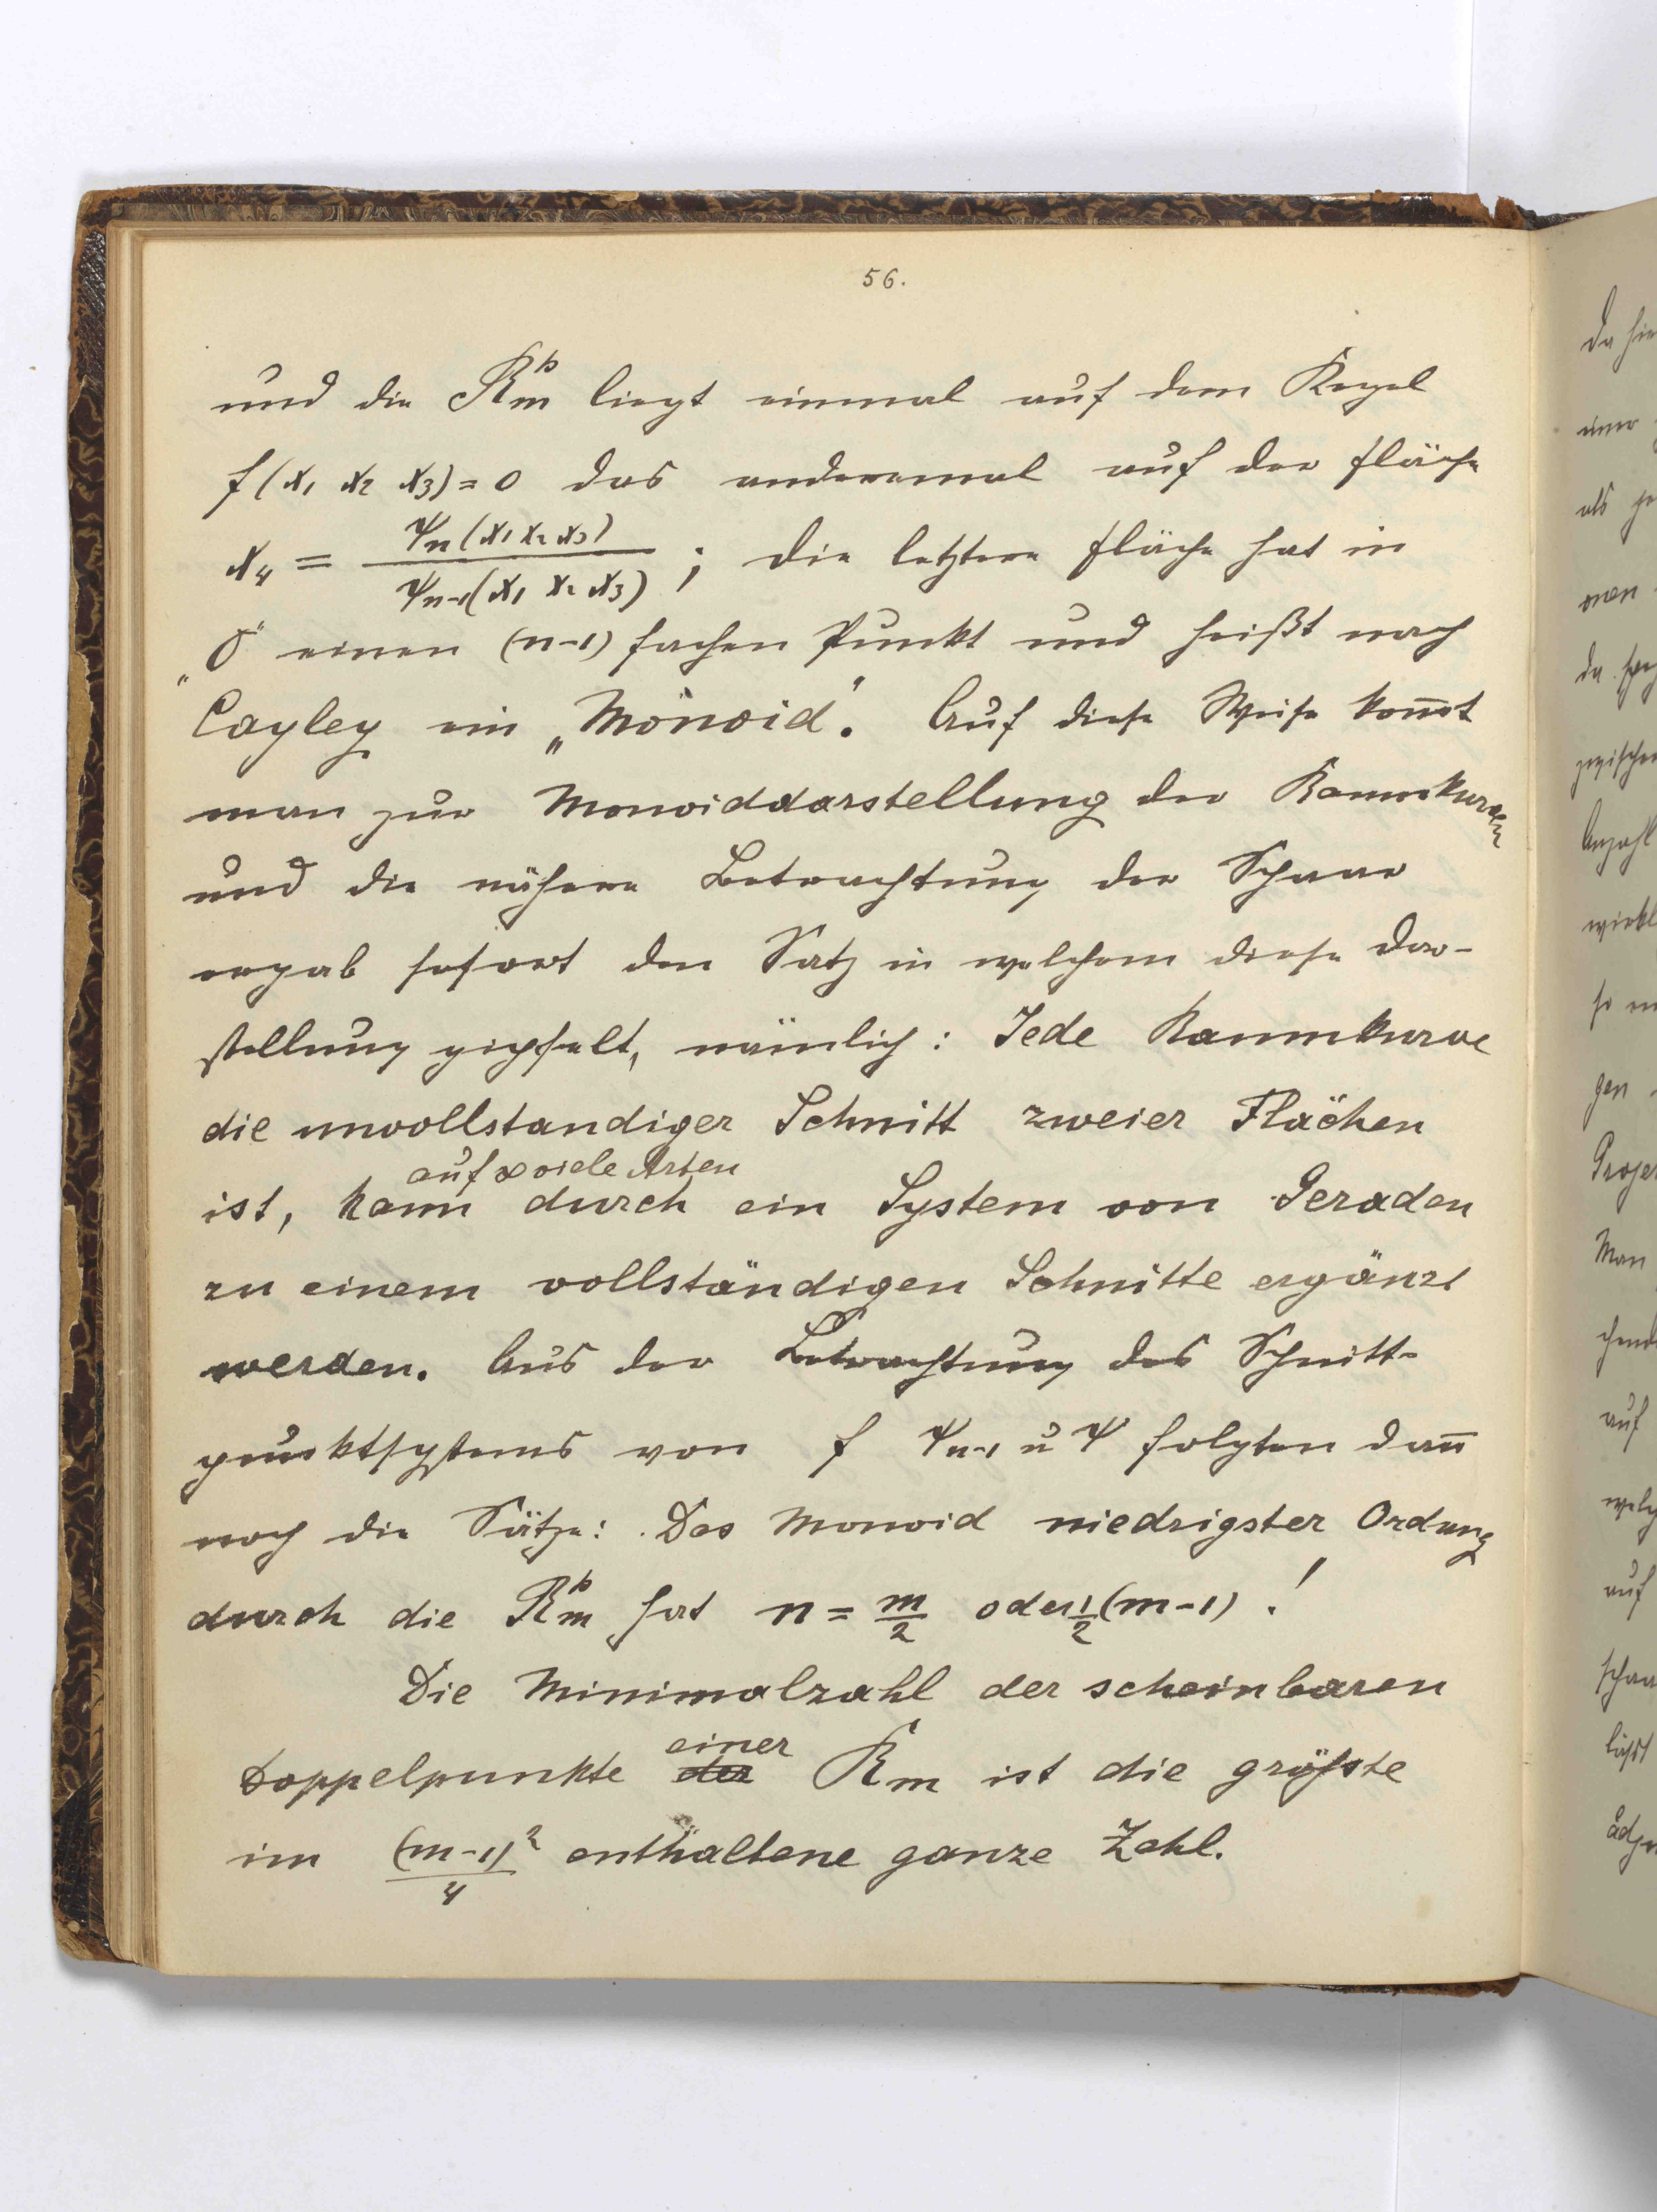 56.
und die R_m^p liegt einmal auf dem Kegel
f(x₁ x₂ x₃) = 0 das anderemal auf der Fläche
x₄ = ψ_n(x₁ x₂ x₃) / ψ_{n-1}(x₁ x₂ x₃) ; die letztere Fläche hat in
„O“ einen (n-1) fachen Punkt und heißt nach
Cayley ein „Monoid“. Auf diese Weise kom̄t
man zur Monoiddarstellung der Raumkurven
und die nähere Betrachtung der Schaar
ergab sofort den Satz in welchem diese Dar-
stellung gipfelt, nämlich: Jede Raumkurve
die unvollstandiger Schnitt zweier Flächen
auf ∞ viele Arten
ist, kann durch ein System von Geraden
zu einem vollständigen Schnitte ergänzt
werden. Aus der Betrachtung des Schnitt-
punktsystems von f ψ_{n-1} u ψ folgten dan̄
noch die Sätze: Das Monoid niedrigster Ordung
durch die R_m^p hat n = m/2 oder 1/2 (m-1) !
Die Minimalzahl der scheinbaren
einer
Doppelpunkte der R_m ist die größte
im (m-1)²/4 enthaltene ganze Zahl.